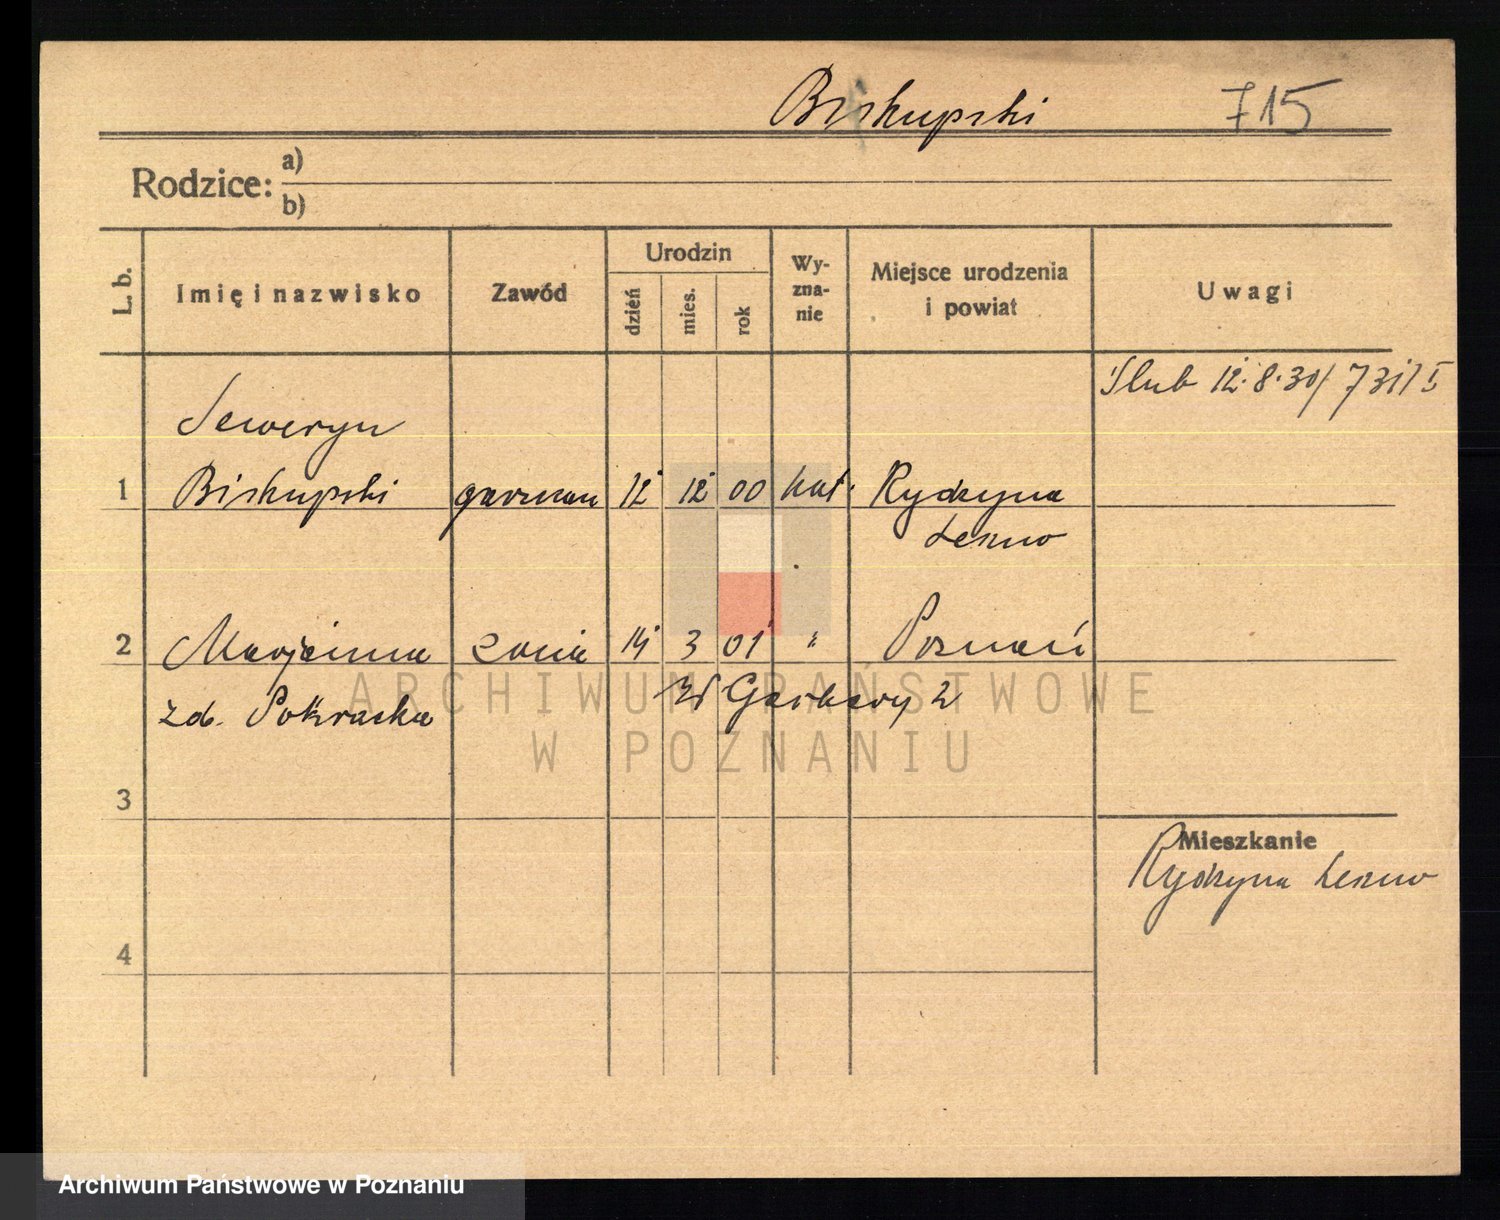 Biskupski 715
Rodzice: a)
b)
L. b. Imię i nazwisko Zawód Urodzin dzień mies. rok Wy-zna-nie Miejsce urodzenia i powiat Uwagi
Ślub 12.8.30/ 731/I
Seweryn
1 Biskupski 12 12 00 kat. Rydzyna
Leszno
2 Marjanna żona 14 3 01 " Poznań
zd. Pokraska Garbary 2
ARCHIWUM PAŃSTWOWE
W POZNANIU
3
Mieszkanie
Rydzyna Leszno
4
Archiwum Państwowe w Poznaniu